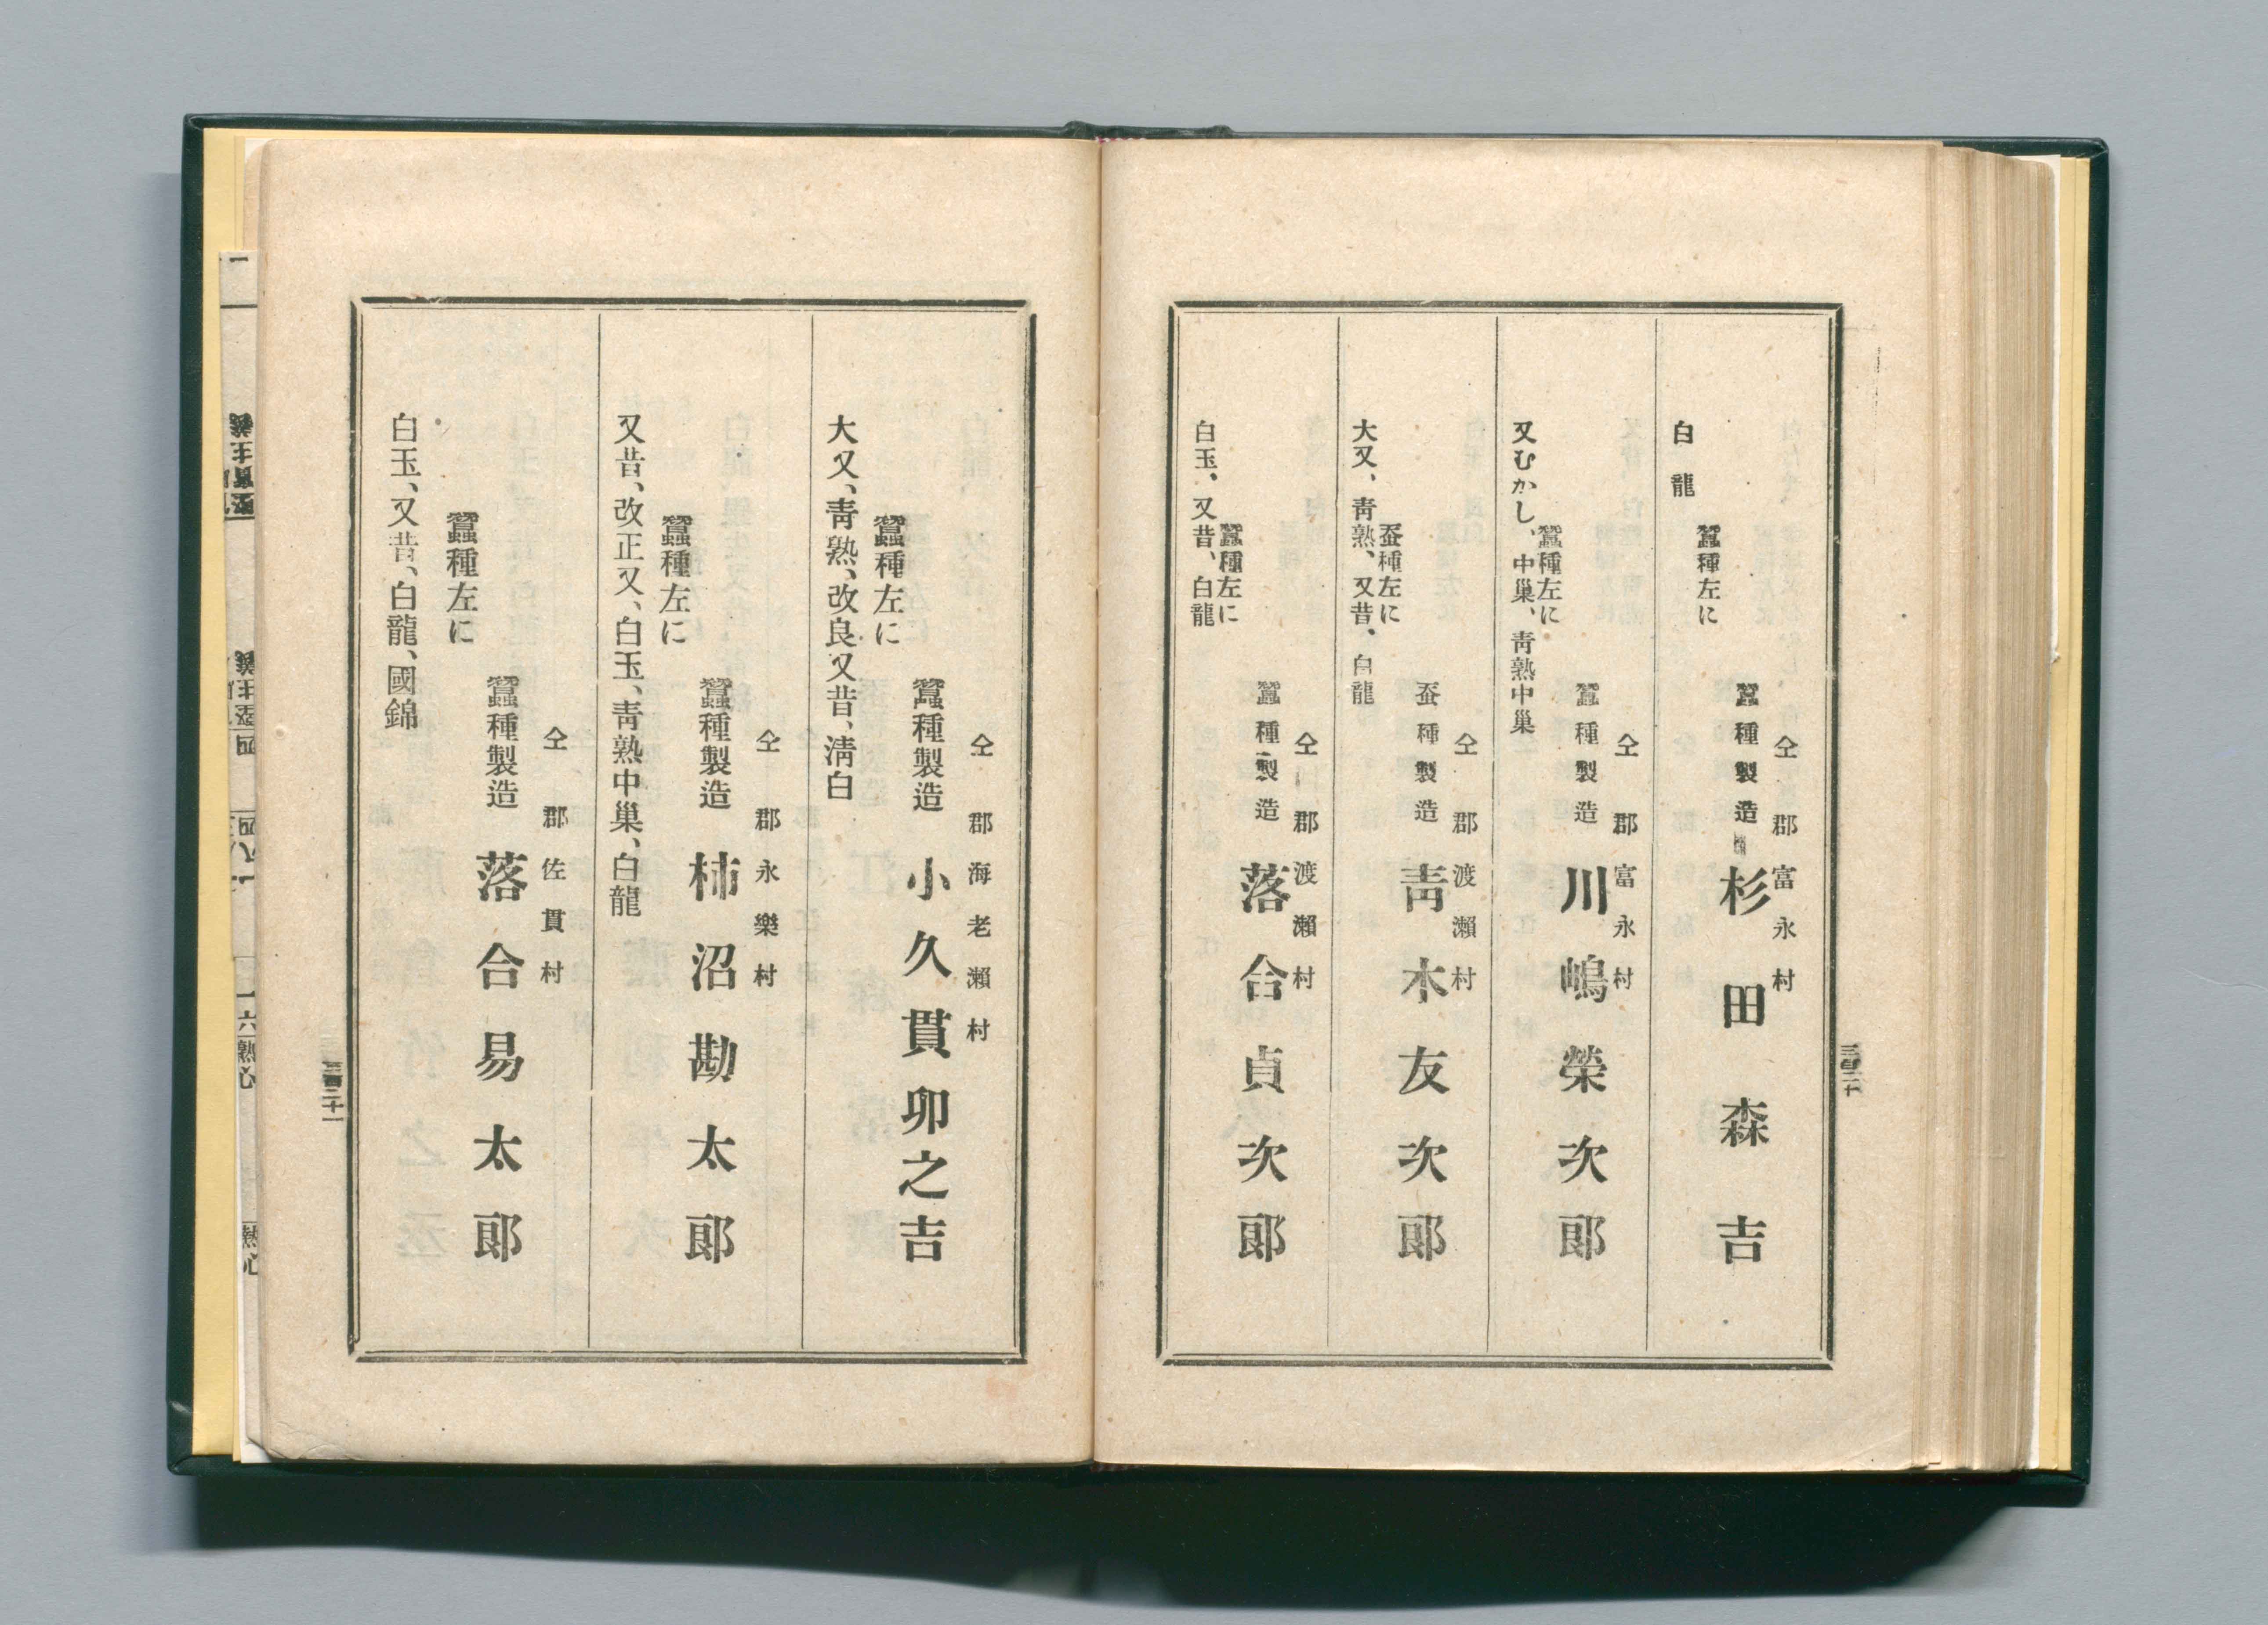 仝郡富永村
蠶種製造 杉田森吉
蠶種左に
白龍
仝郡富永村
蠶種製造 川嶋榮次郞
蠶種左に
又むかし、中巢、靑熟中巢
仝郡渡瀨村
蚕種製造 靑木友次郞
蚕種左に
大又、靑熟、又昔、白龍
仝郡渡瀨村
蠶種製造 落合貞次郞
蠶種左に
白玉、又昔、白龍
仝郡海老瀨村
蠶種製造 小久貫卯之吉
蠶種左に
大又、靑熟、改良又昔、淸白
仝郡永樂村
蠶種製造 柿沼勘太郞
蠶種左に
又昔、改正又、白玉、靑熟中巢、白龍
仝郡佐貫村
蠶種製造 落合易太郞
蠶種左に
白玉、又昔、白龍、國錦